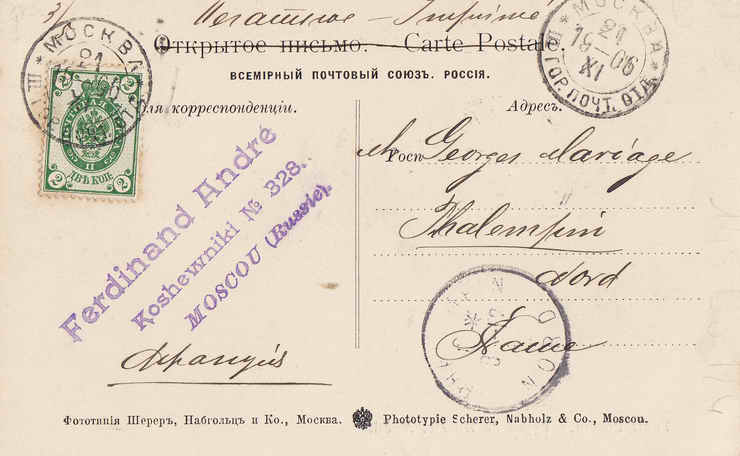 Печатное - Imprimé
Открытое письмо. — Carte Postale.
ВСЕМІРНЫЙ ПОЧТОВЫЙ СОЮЗЪ. РОССІЯ.
МОСКВА
21
МОСКВА
21
19-06
XI
ГОР. ПОЧТ. ОТД.
2 2
ДВѢ КОП.
Для корреспонденціи.
Адресъ.
Ferdinand André
Koshewniki № 328.
MOSCOU (Russie).
Georges Mariage
Phalempin
Nord
France
NORD
Фототипія Шереръ, Набгольцъ и Ко., Москва. Phototypie Scherer, Nabholz & Co., Moscou.